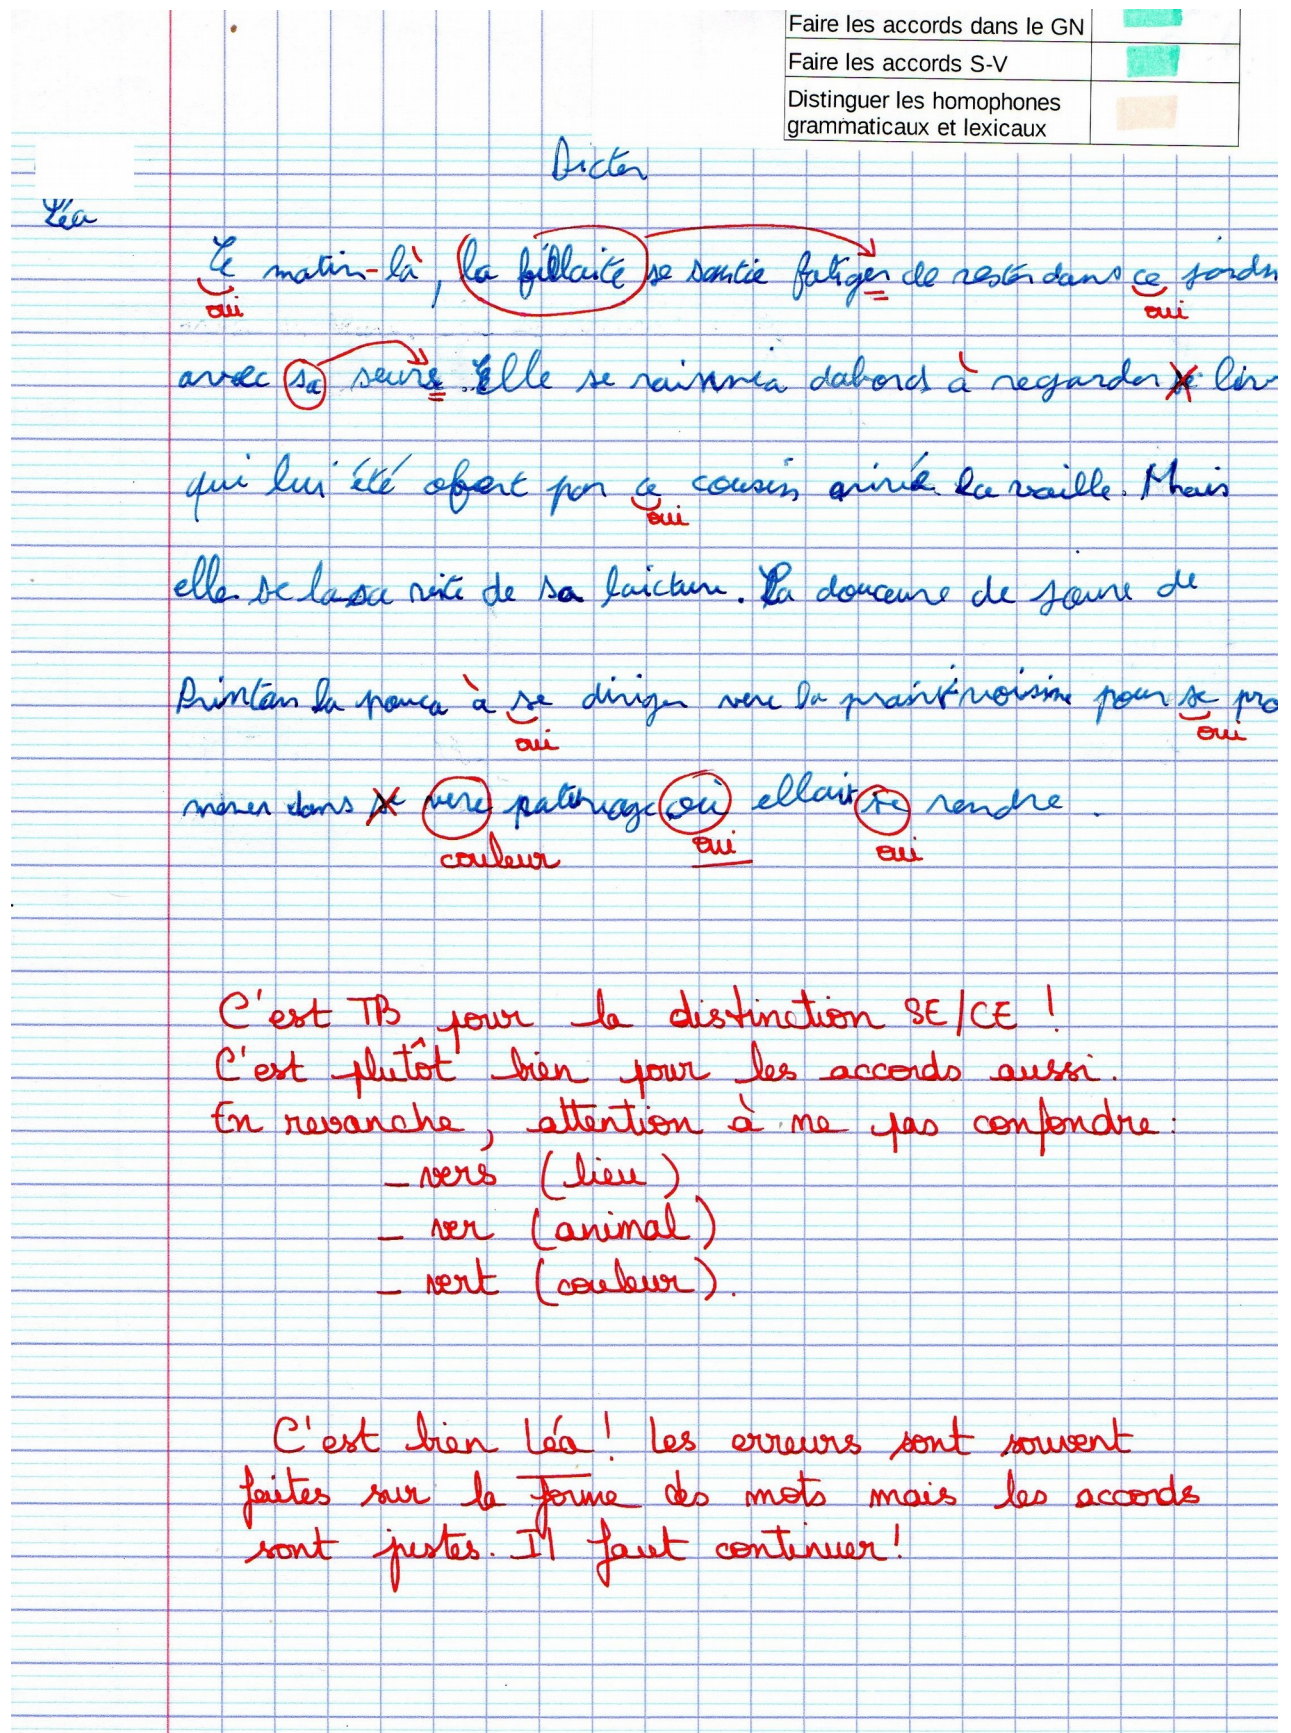 Faire les accords dans le GN
Faire les accords S-V
Distinguer les homophones
grammaticaux et lexicaux
Dicter
Léa
Ce matin-là, la fillaite se sentie fatiger de rester dans ce jardin
oui oui
avec sa seurs. Elle se raisinia dabord à regarder livr
qui lui été ofert par ce cousin arivée la vaille. Mais
oui
elle se lassa vite de sa laicture. La douceure de se jour de
Printan la pouça à se diriger vere la prairi voisine pour se pro
oui oui
mener dans vere paturage où ellait se rendre.
couleur oui oui
C'est TB pour la distinction SE/CE !
C'est plutôt bien pour les accords aussi.
En revanche, attention à ne pas confondre :
- vers (lieu)
- ver (animal)
- vert (couleur).
C'est bien Léa! Les erreurs sont souvent
faites sur la forme des mots mais les accords
sont justes. Il faut continuer!